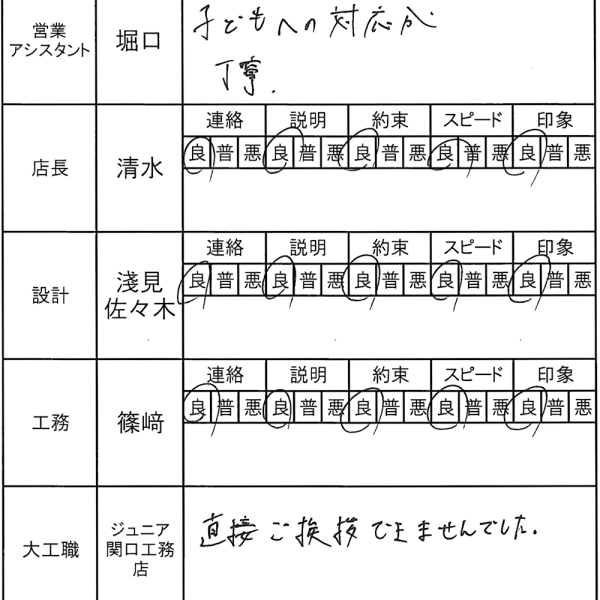 営業
アシスタント
堀口
子どもへの対応が
丁寧.
店長
清水
連絡 説明 約束 スピード 印象
良 普 悪 良 普 悪 良 普 悪 良 普 悪 良 普 悪
設計
淺見
佐々木
連絡 説明 約束 スピード 印象
良 普 悪 良 普 悪 良 普 悪 良 普 悪 良 普 悪
工務
篠﨑
連絡 説明 約束 スピード 印象
良 普 悪 良 普 悪 良 普 悪 良 普 悪 良 普 悪
大工職
ジュニア
関口工務
店
直接ご挨拶できませんでした.